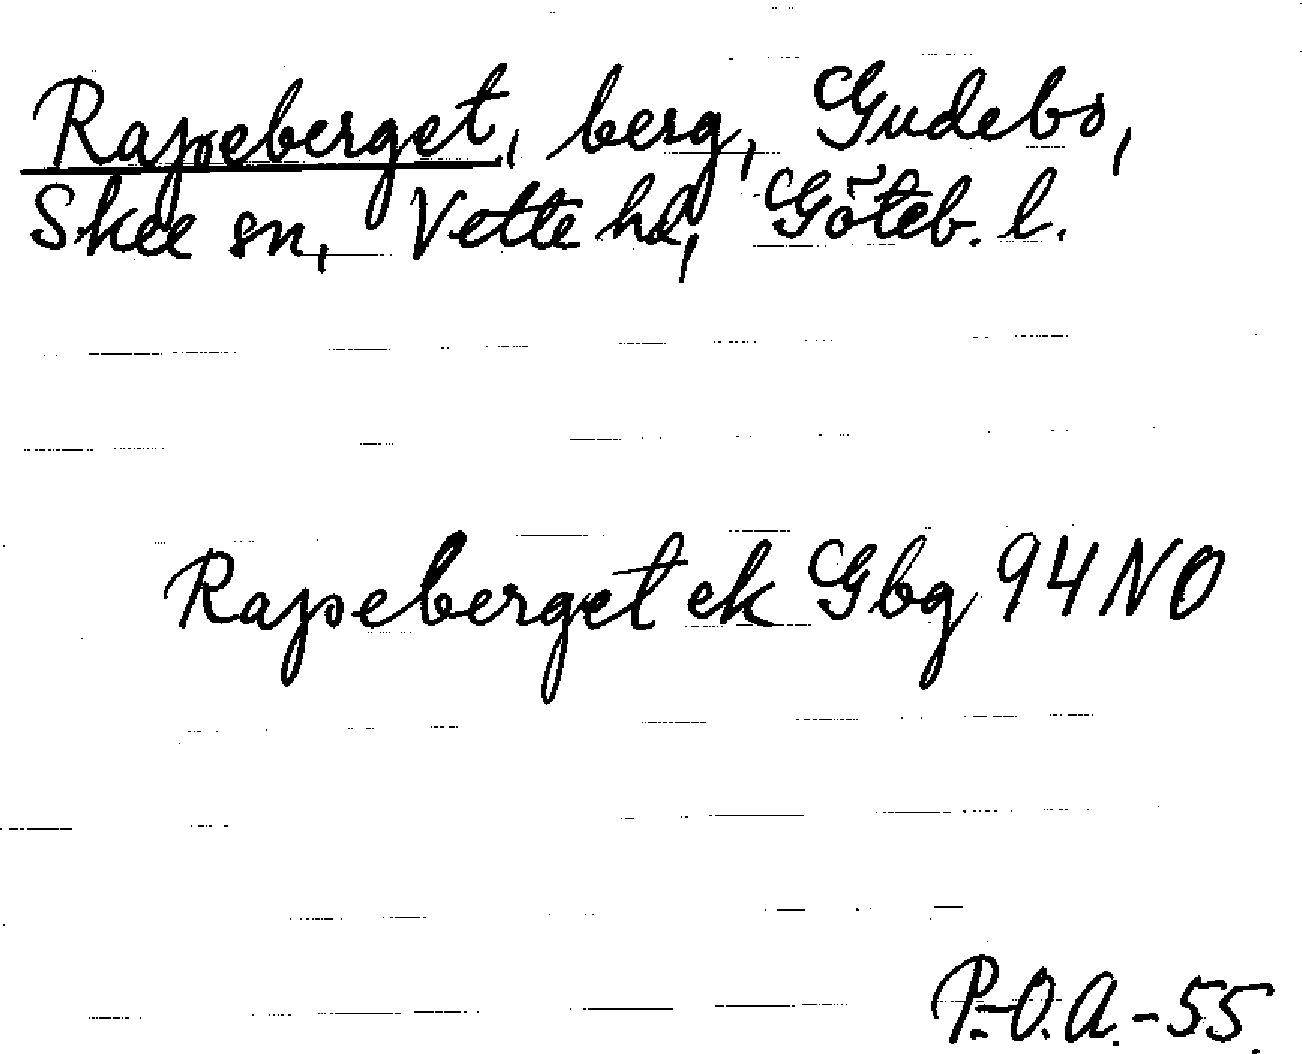 Rapeberget, berg, Gudebo,
Skee sn, Vette hd, Göteb. l.
Rapeberget ek Gbg 94 NO
P.-O.A.-55.